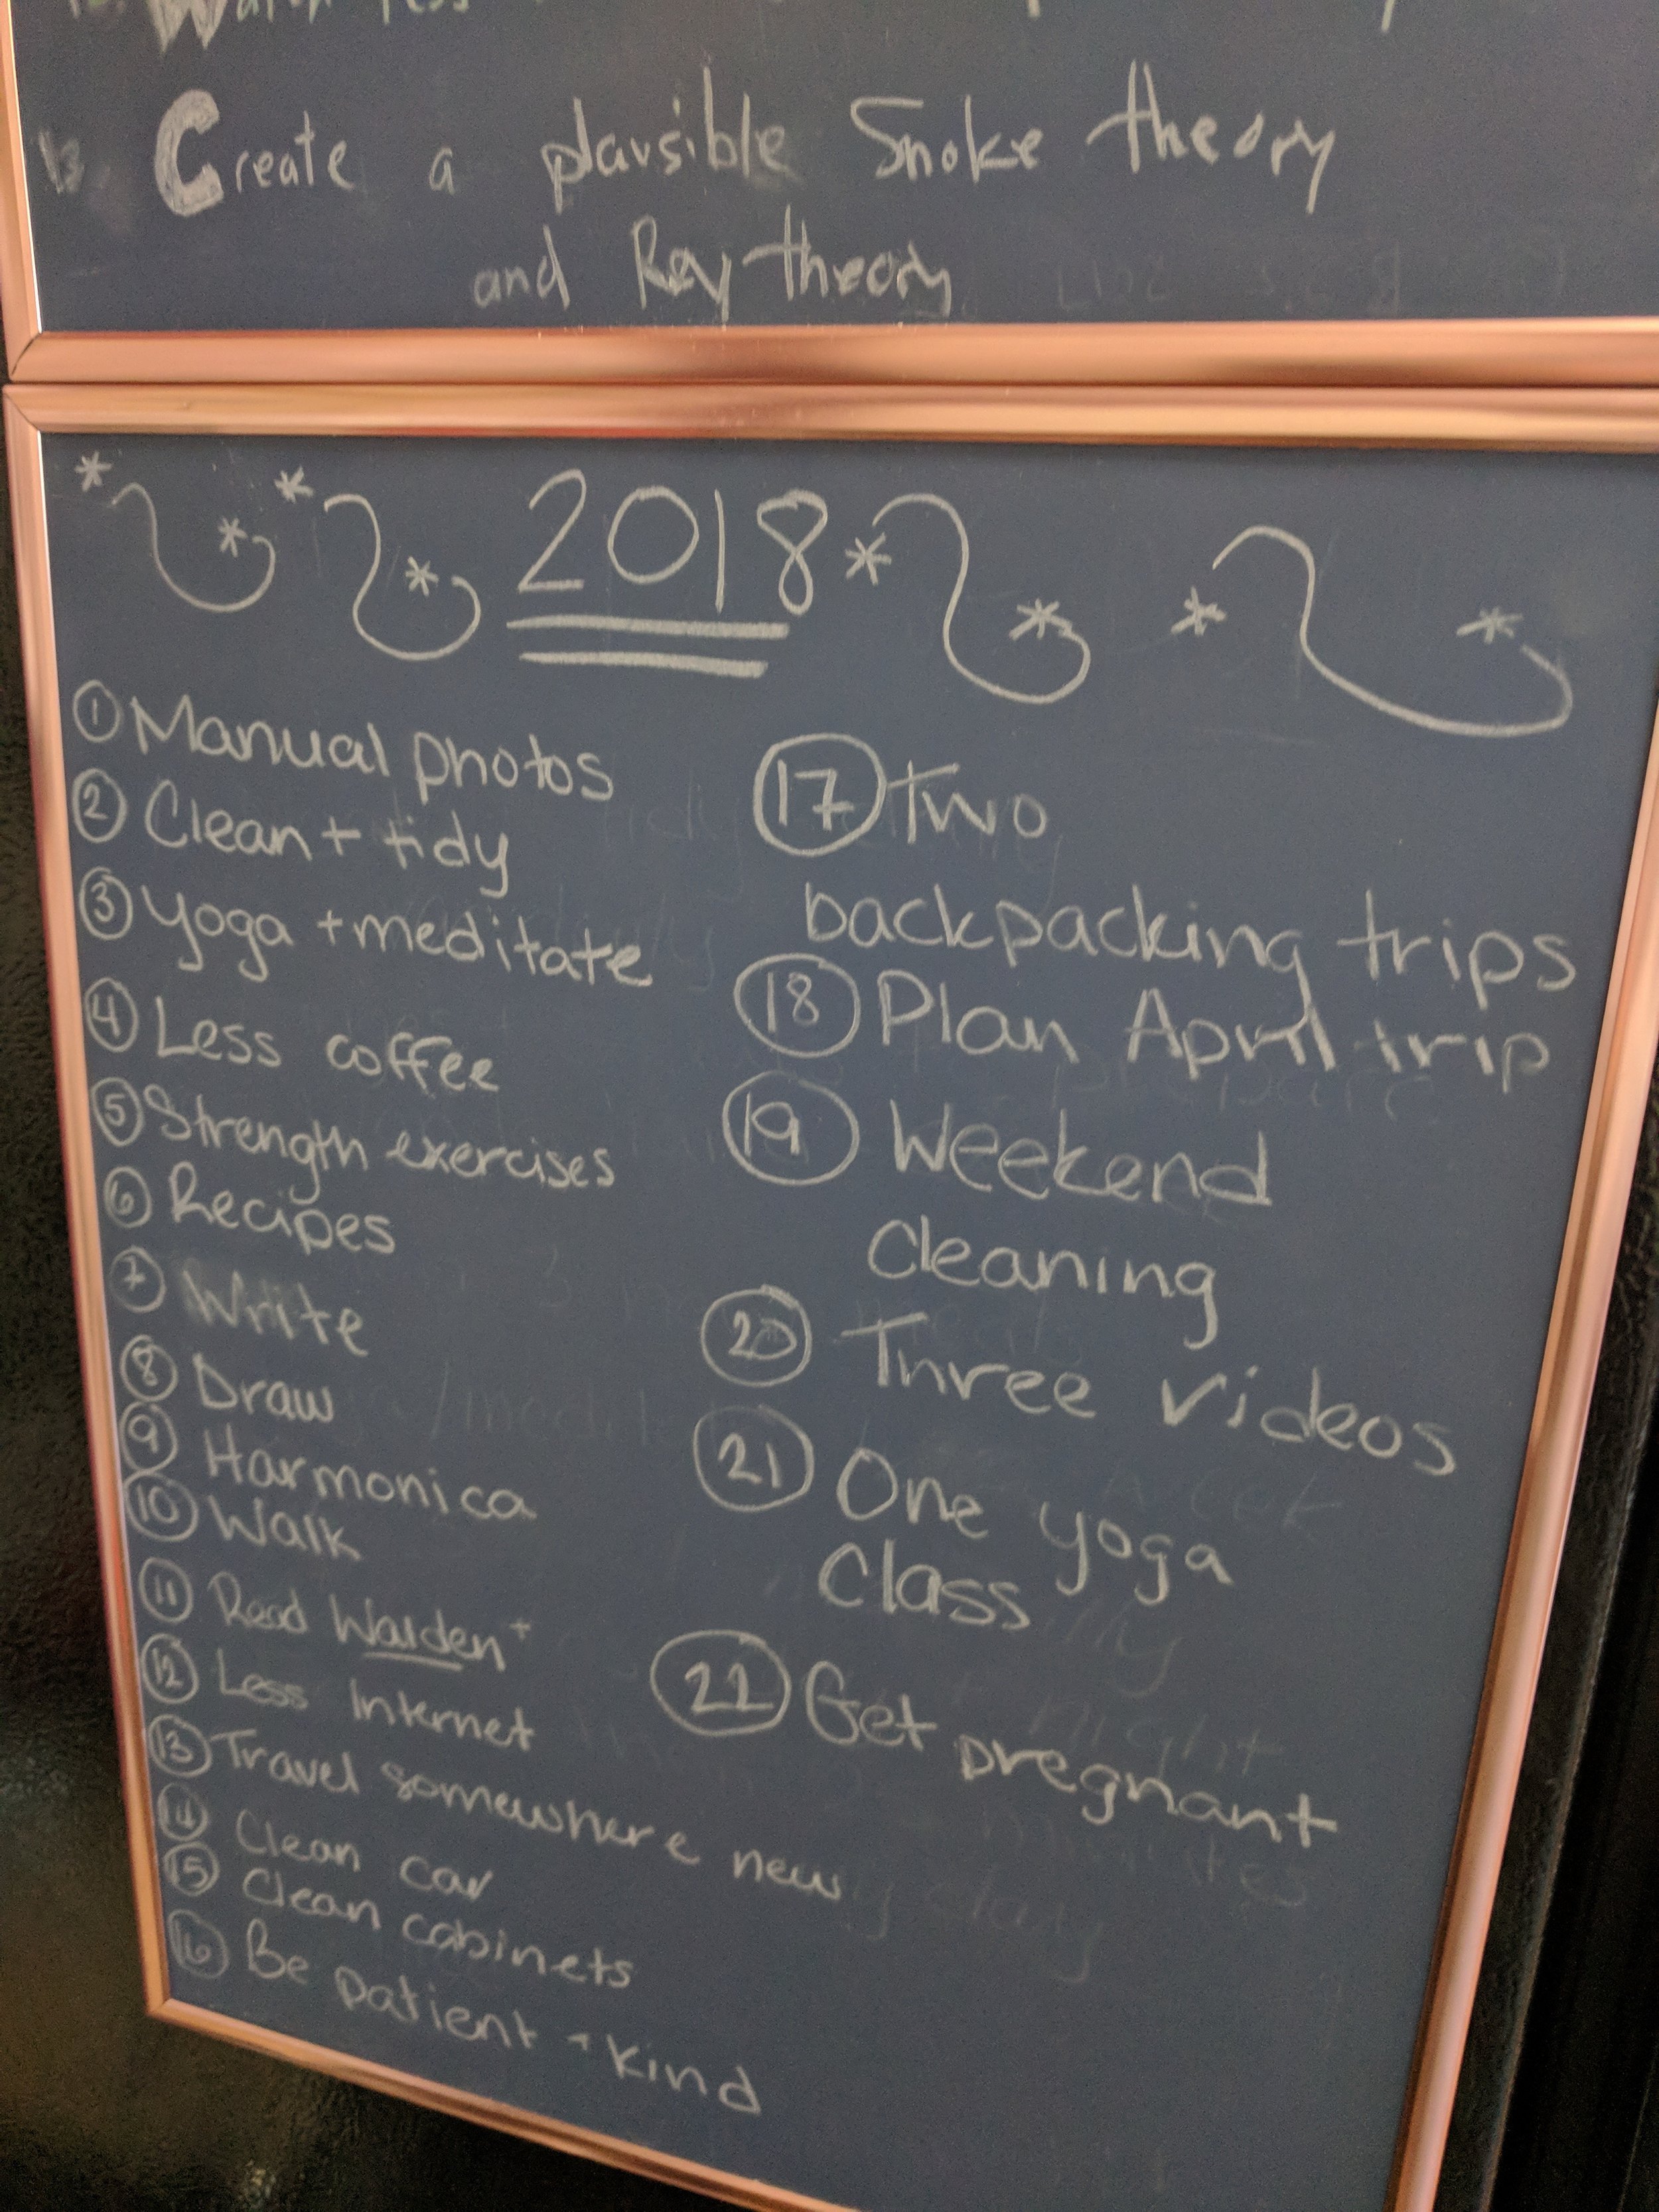 13. Create a plausible Snoke theory
and Rey theory
2018
1 Manual photos
2 Clean + tidy
3 Yoga + meditate
4 Less coffee
5 Strength exercises
6 Recipes
7 Write
8 Draw
9 Harmonica
10 Walk
11 Read Walden +
12 Less Internet
13 Travel somewhere new
14 Clean car
15 Clean cabinets
16 Be patient + kind
17 Two
backpacking trips
18 Plan April trip
19 Weekend
Cleaning
20 Three videos
21 One yoga
Class
22 Get pregnant